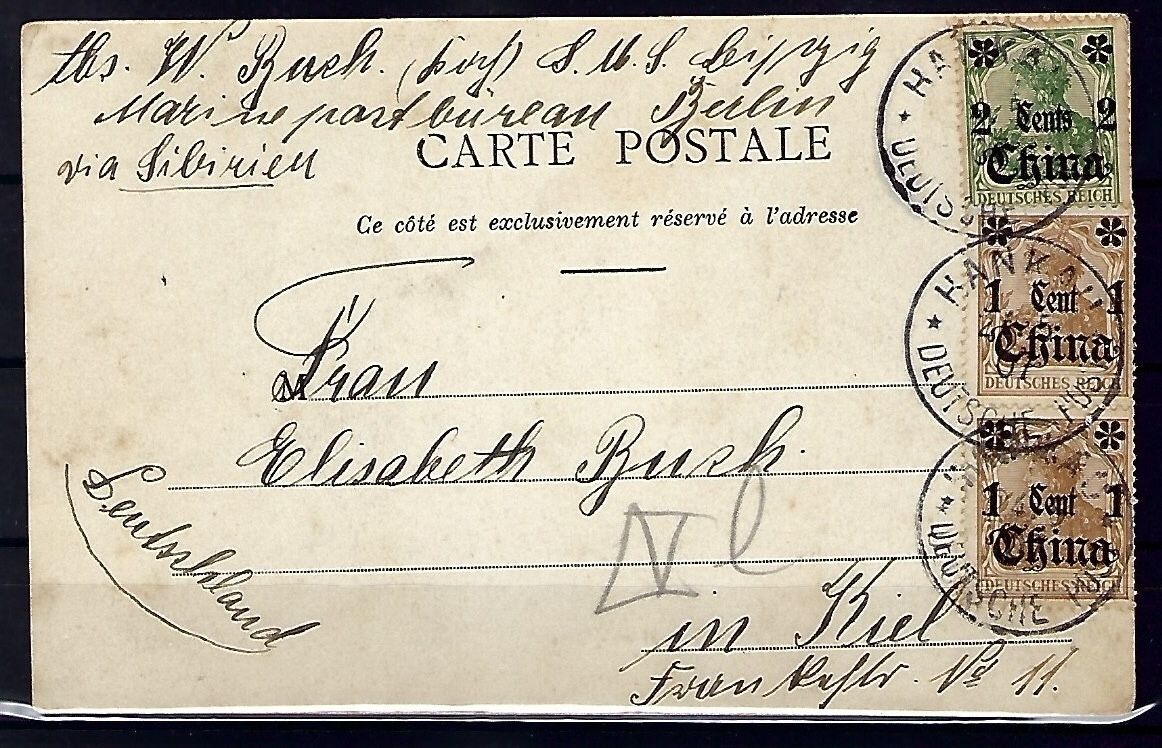 Abs. W. Busch. S. M. S. Leipzig
Marinepostbüreau Berlin
via Sibirien
CARTE POSTALE
Ce côté est exclusivement réservé à l'adresse
Frau
Elisabeth Busch.
Deutschland
in Kiel
No 11.
2 Cents 2
China
DEUTSCHES REICH
HANKAU
DEUTSCHE POST
1 Cent 1
China
DEUTSCHES REICH
HANKAU
DEUTSCHE POST
1 Cent 1
China
DEUTSCHES REICH
HANKAU
DEUTSCHE POST